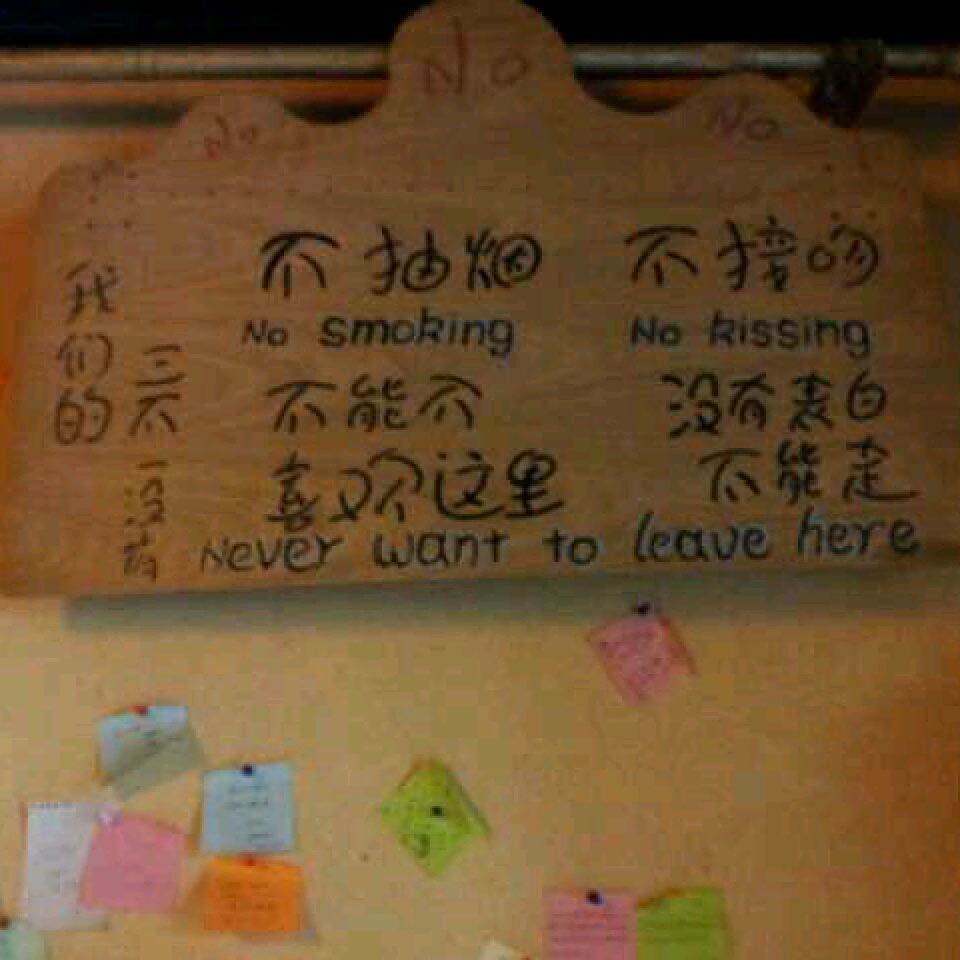 No
No
No
我们的
三不
一没有
不抽烟
不接吻
No smoking
No kissing
不能不
喜欢这里
没有表白
不能走
Never want to leave here